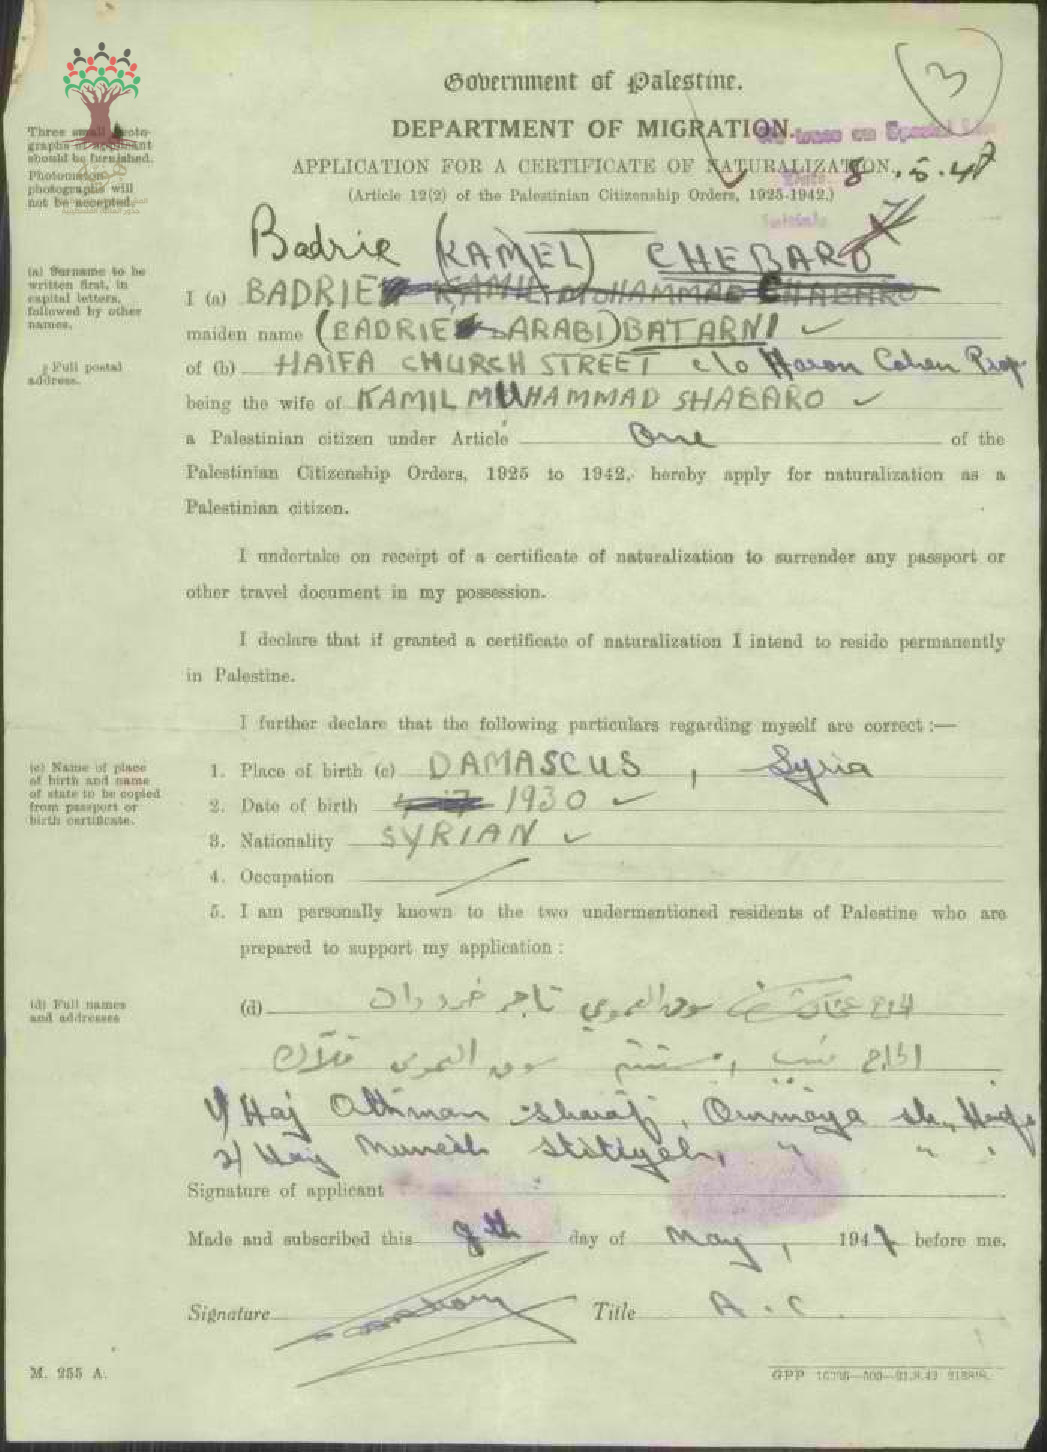 Government of Palestine.
DEPARTMENT OF MIGRATION.
APPLICATION FOR A CERTIFICATE OF NATURALIZATION.
8.5.47
(Article 12(2) of the Palestinian Citizenship Orders, 1925-1942.)
3
Three small photographs of applicant should be furnished. Photomaton photographs will not be accepted.
Badrie (KAMEL) CHEBARO
(a) Surname to be written first, in capital letters, followed by other names.
I (a) BADRIE KAMIL MUHAMMAD CHABARO
maiden name (BADRIE ARABI) BATARNI
(b) Full postal address.
of (b) HAIFA CHURCH STREET c/o Haron Cohen Prop
being the wife of KAMIL MUHAMMAD SHABARO
a Palestinian citizen under Article One of the
Palestinian Citizenship Orders, 1925 to 1942, hereby apply for naturalization as a
Palestinian citizen.
I undertake on receipt of a certificate of naturalization to surrender any passport or
other travel document in my possession.
I declare that if granted a certificate of naturalization I intend to reside permanently
in Palestine.
I further declare that the following particulars regarding myself are correct :—
(c) Name of place of birth and name of state to be copied from passport or birth certificate.
1. Place of birth (c) DAMASCUS, Syria
2. Date of birth 1930
3. Nationality SYRIAN
4. Occupation
5. I am personally known to the two undermentioned residents of Palestine who are
prepared to support my application :
(d) Full names and addresses
(d) الحاج سوق العمومي تاجر خردوات
الحاج سوق العمومي
1/ Haj Athman Ommaya str. Haifa
2/ Haj Muneeb Stitiyeh, " " "
Signature of applicant
Made and subscribed this 8th day of May, 1947 before me.
Signature Title A.C.
M. 255 A.
GPP